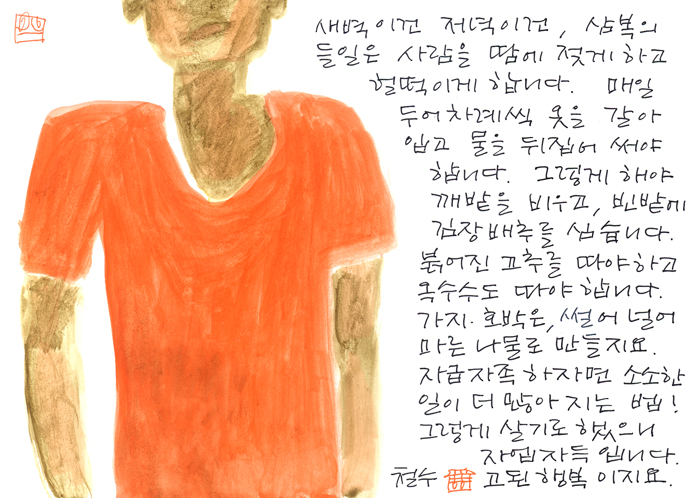 새벽이건 저녁이건, 삼복의
들일은 사람을 땀에 젖게 하고
헐떡이게 합니다. 매일
두어차례씩 옷을 갈아
입고 물을 뒤집어 써야
합니다. 그렇게 해야
깨밭을 비우고, 빈밭에
김장배추를 심습니다.
붉어진 고추를 따야하고
옥수수도 따야 합니다.
가지·호박은, 썰어 널어
마른 나물로 만들지요.
자급자족 하자면 소소한
일이 더 많아 지는 법!
그렇게 살기로 했으니
자업자득 입니다.
철수 고된 행복 이지요.